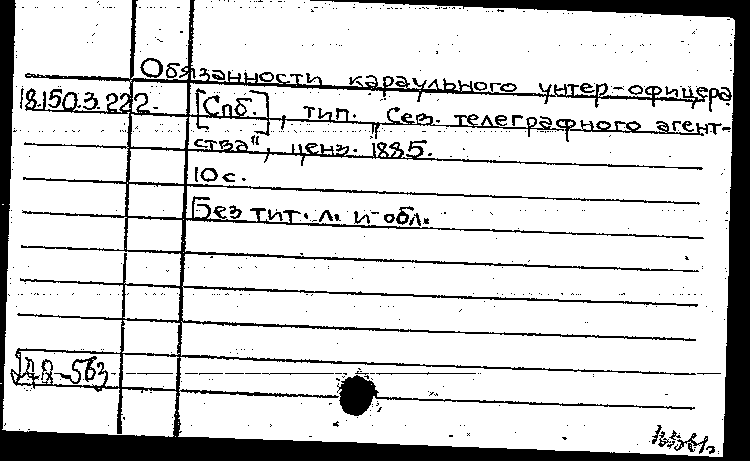 Обязанности караульного унтер-офицера
18.150.3.222. [Спб.], тип. „Сев. телеграфного агент-
ства", ценз. 1885.
10 с.
Без тит. л. и обл.